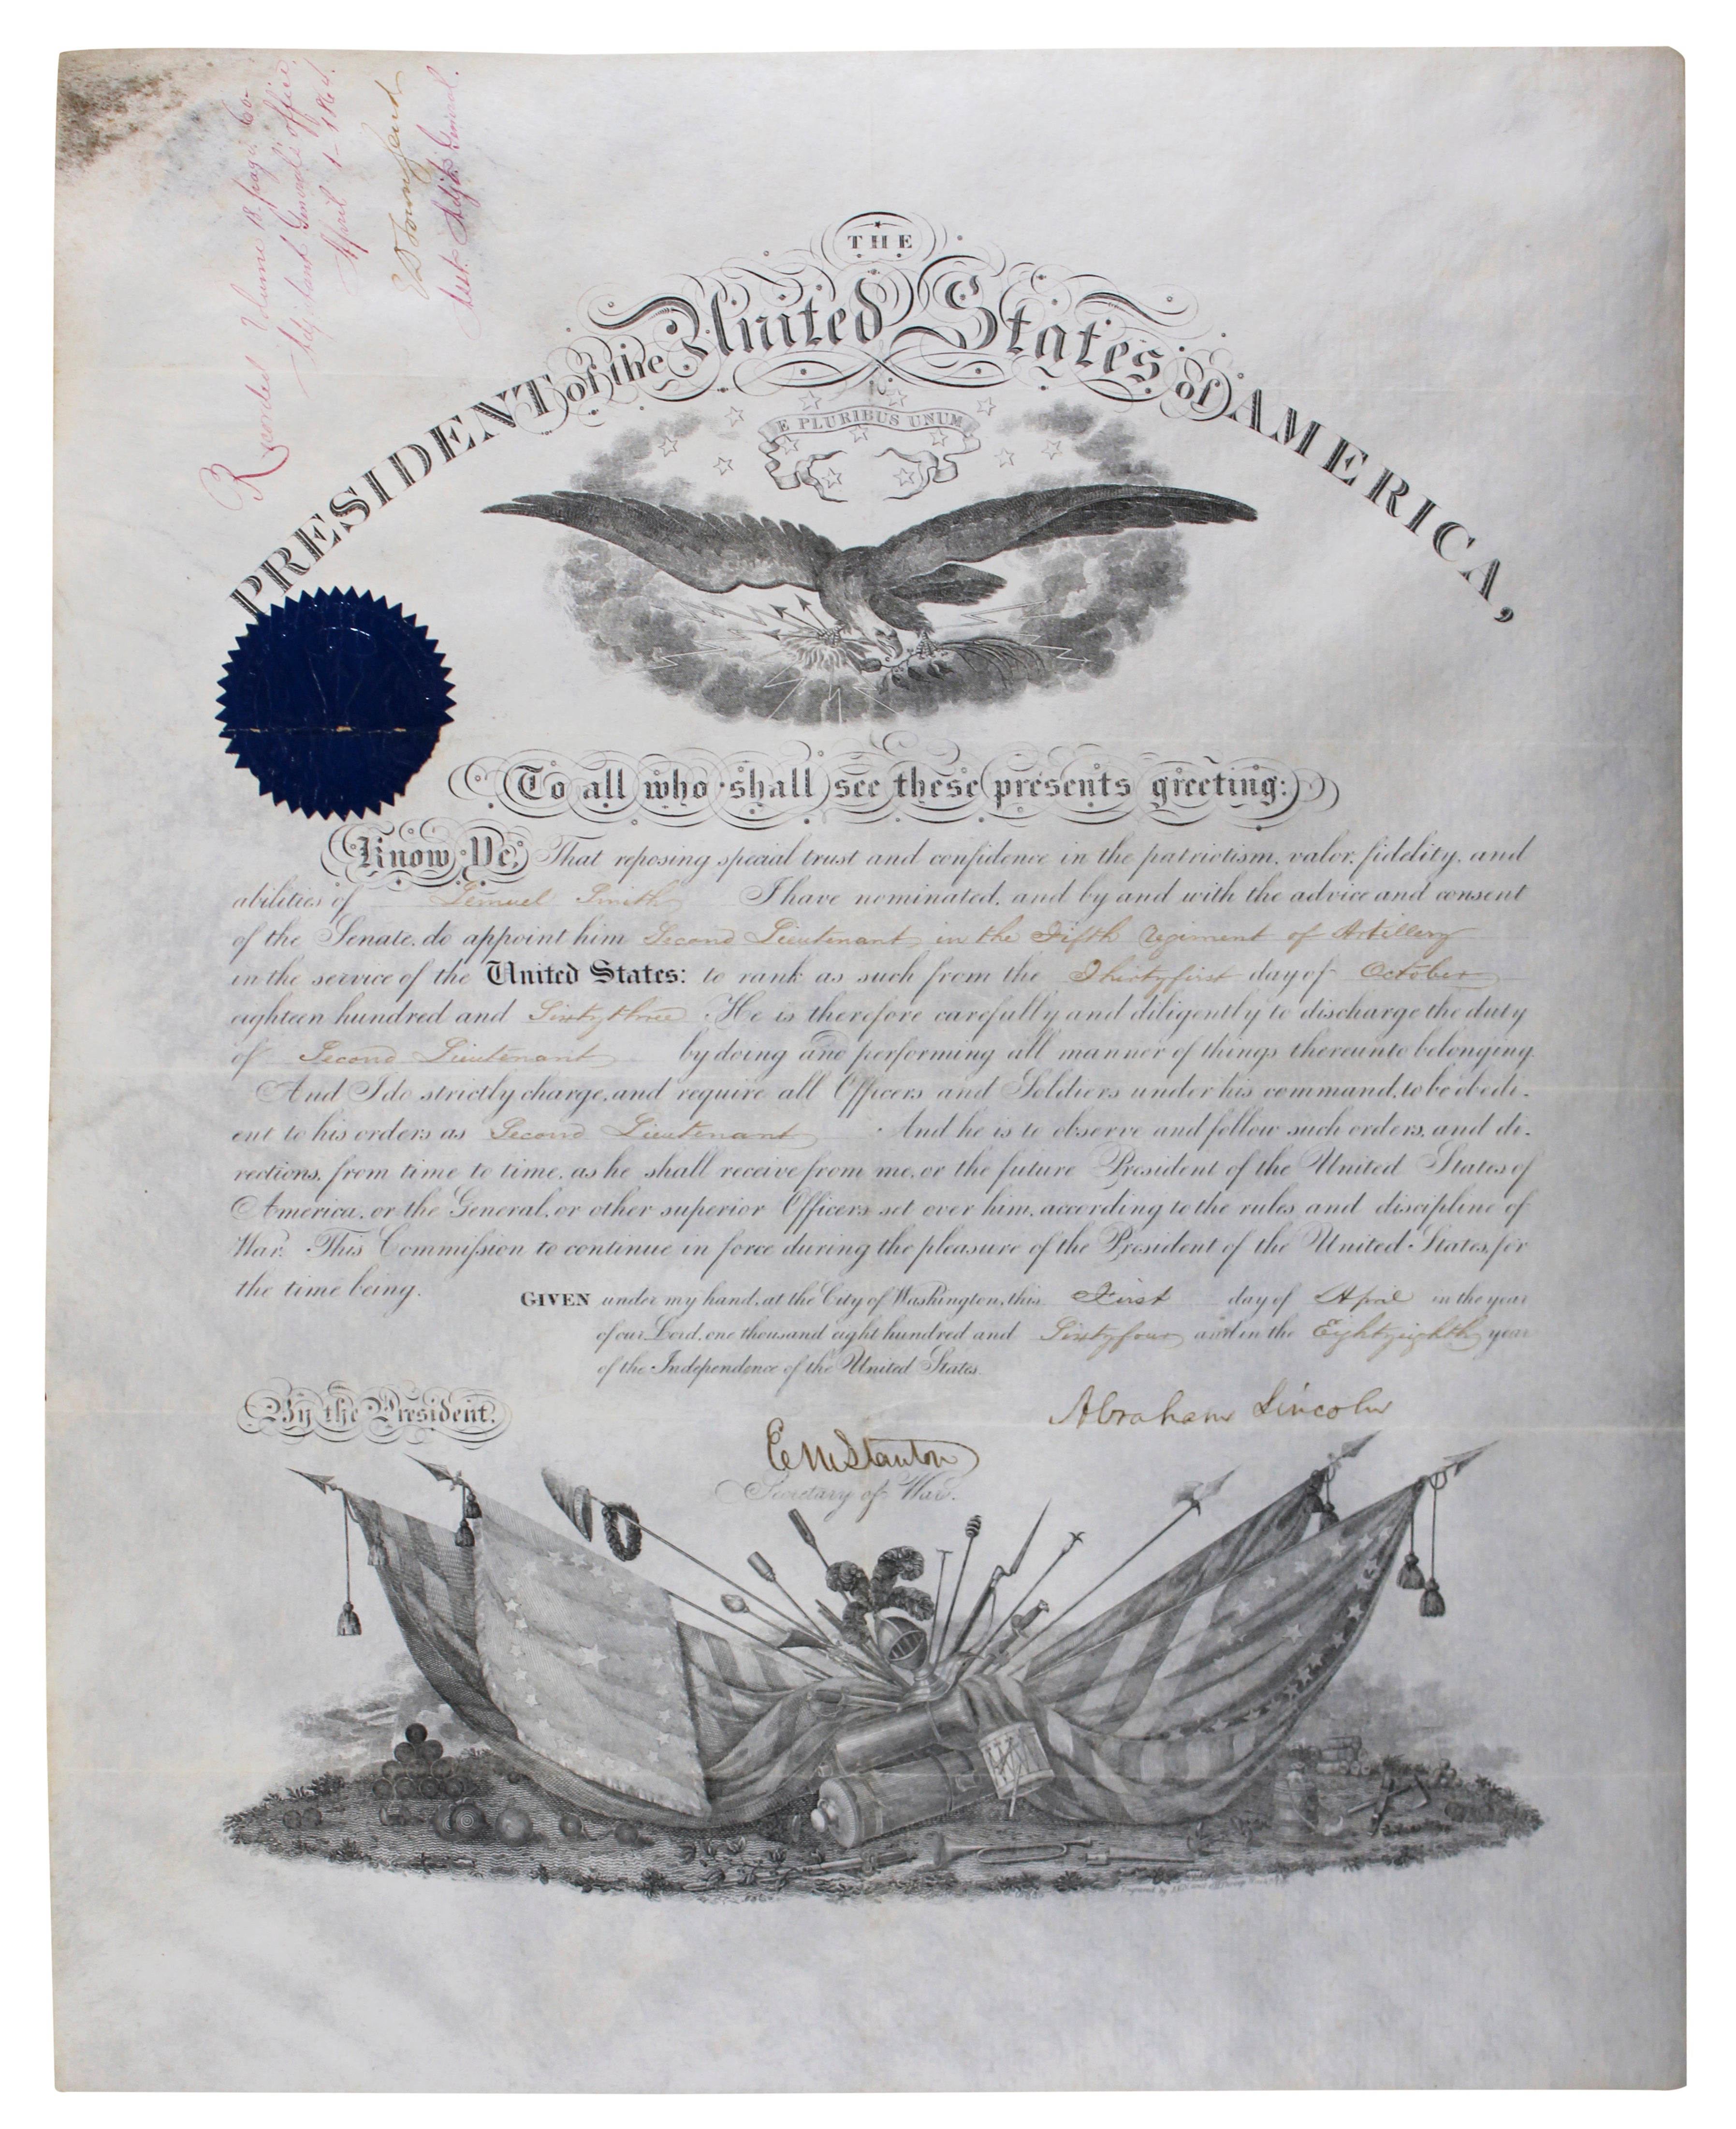 Recorded Volume 18. page 60
Adjutant General's Office
April 1- 1864.
E D Townsend
Asst. Adjt. General.
THE
PRESIDENT of the United States of AMERICA,
E PLURIBUS UNUM
To all who shall see these presents greeting:
Know Ye, That reposing special trust and confidence in the patriotism, valor, fidelity, and
abilities of Lemuel Smith I have nominated, and by and with the advice and consent
of the Senate, do appoint him Second Lieutenant in the Fifth regiment of Artillery
in the service of the United States: to rank as such from the Thirty first day of October
eighteen hundred and Sixty three He is therefore carefully and diligently to discharge the duty
of Second Lieutenant by doing and performing all manner of things thereunto belonging.
And I do strictly charge, and require all Officers and Soldiers under his command, to be obedi-
ent to his orders as Second Lieutenant And he is to observe and follow such orders, and di-
rections, from time to time, as he shall receive from me, or the future President of the United States of
America, or the General, or other superior Officers set over him, according to the rules and discipline of
War. This Commission to continue in force during the pleasure of the President of the United States, for
the time being.
GIVEN under my hand, at the City of Washington, this First day of April in the year
of our Lord, one thousand eight hundred and Sixty four and in the Eighty eighth year
of the Independence of the United States.
By the President,
Abraham Lincoln
E M Stanton
Secretary of War.
Engraved by